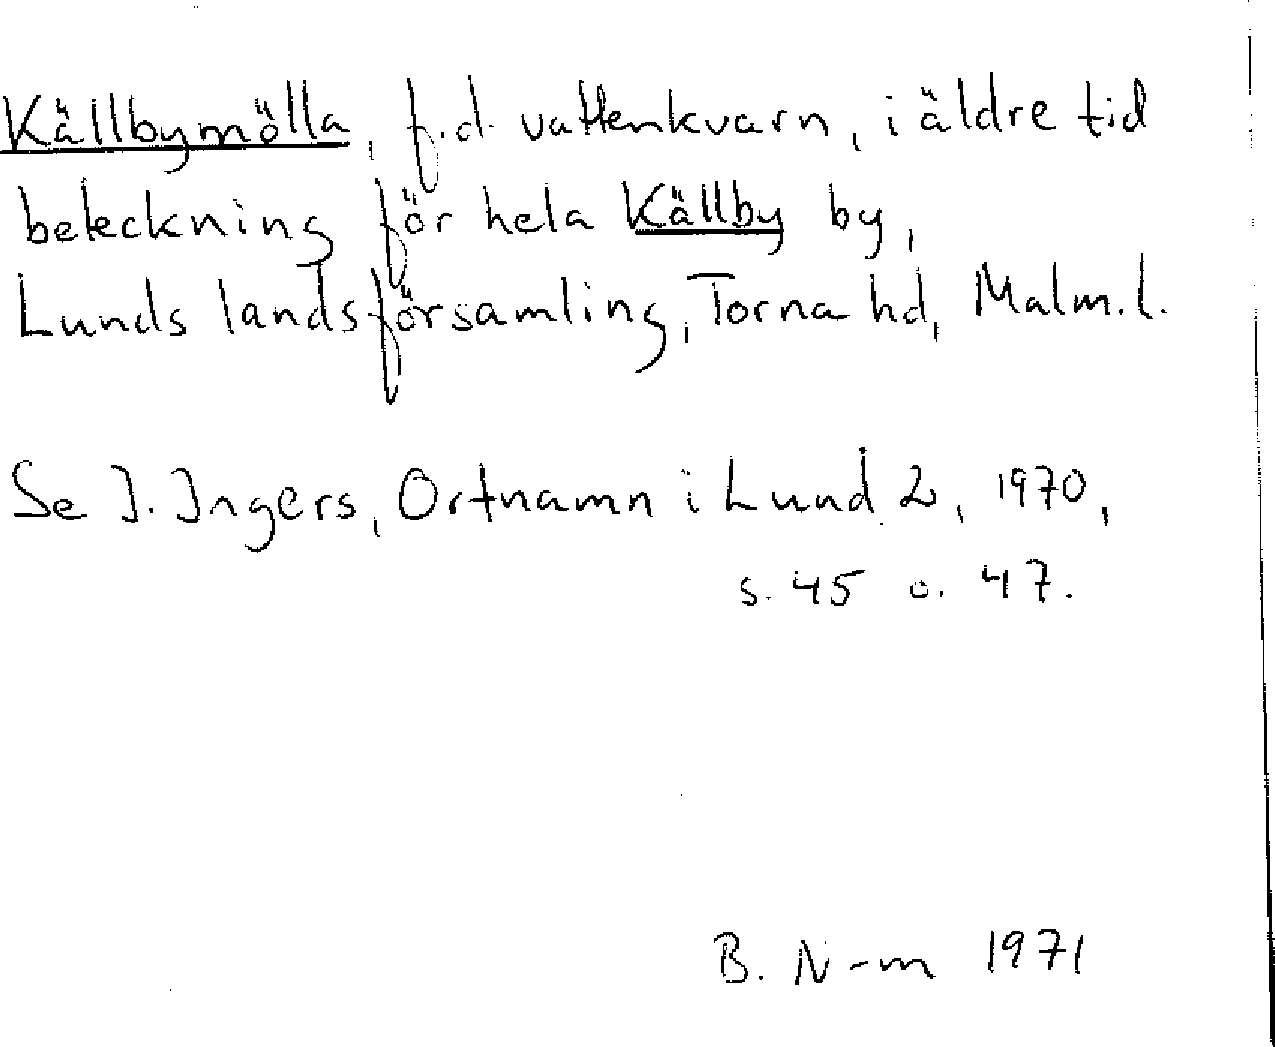 Källbymölla, f.d. vattenkvarn, i äldre tid
beteckning för hela Källby by,
Lunds landsförsamling, Torna hd, Malm.l.
Se I. Ingers, Ortnamn i Lund 2, 1970,
s. 45 o. 47.
B. N-m 1971